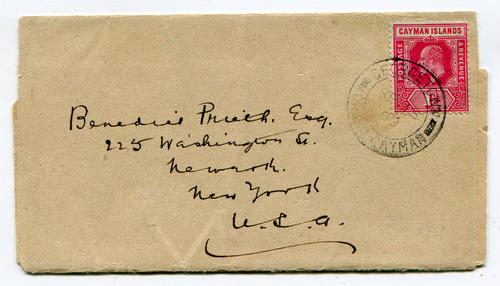 CAYMAN ISLANDS
POSTAGE & REVENUE
GEORGETOWN
CAYMAN
Benedict Prieth. Esq.
225 Washington St.
Newark.
New York
U.S.A.